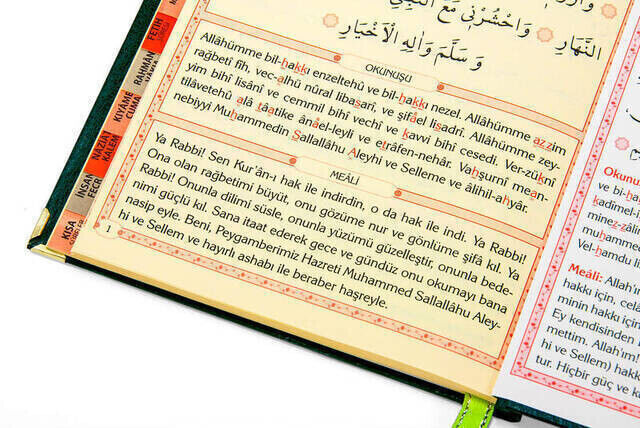 النَّهَارِ وَاحْشُرْنِي مَعَ النَّبِيِّ
وَسَلَّمَ وَاٰلِهِ الْاَخْيَارِ
OKUNUŞU
Allâhümme bil-hakkı enzeltehû ve bil-hakkı nezel. Allâhümme azzim
rağbetî fîh, vec-alhü nûral libasarî, ve şifâel lisadrî. Allâhümme zey-
yim bihî lisânî ve cemmil bihî vechî ve kavvi bihî cesedî. Ver-zuknî
tilâvetehû alâ tâatike ânâel-leyli ve etrâfen-nehâr. Vahşurnî mean-
nebiyyi Muhammedin Sallallâhu Aleyhi ve Selleme ve âlihil-ahyâr.
MEÂLİ
Ya Rabbi! Sen Kur'ân-ı hak ile indirdin, o da hak ile indi. Ya Rabbi!
Ona olan rağbetimi büyüt, onu gözüme nur ve gönlüme şifâ kıl. Ya
Rabbi! Onunla dilimi süsle, onunla yüzümü güzelleştir, onunla bede-
nimi güçlü kıl. Sana itaat ederek gece ve gündüz onu okumayı bana
nasip eyle. Beni, Peygamberimiz Hazreti Muhammed Sallallâhu Aley-
hi ve Sellem ve hayırlı ashabı ile beraber haşreyle.
1
FETİH
RAHMÂN
KIYÂME
CUMA
NÂZİÂT
KALEM
İNSAN
FECR
KISA
Okunu
ve bi-ha
kadîmel
minez-zâ
muham
Vel-hamdu li
Meâli: Allah'ı
hakkı için, cela
minin hakkı için
Ey kendisinden
mettim. Allah'ım!
hi ve Sellem) hakk
tur. Hiçbir güç ve k